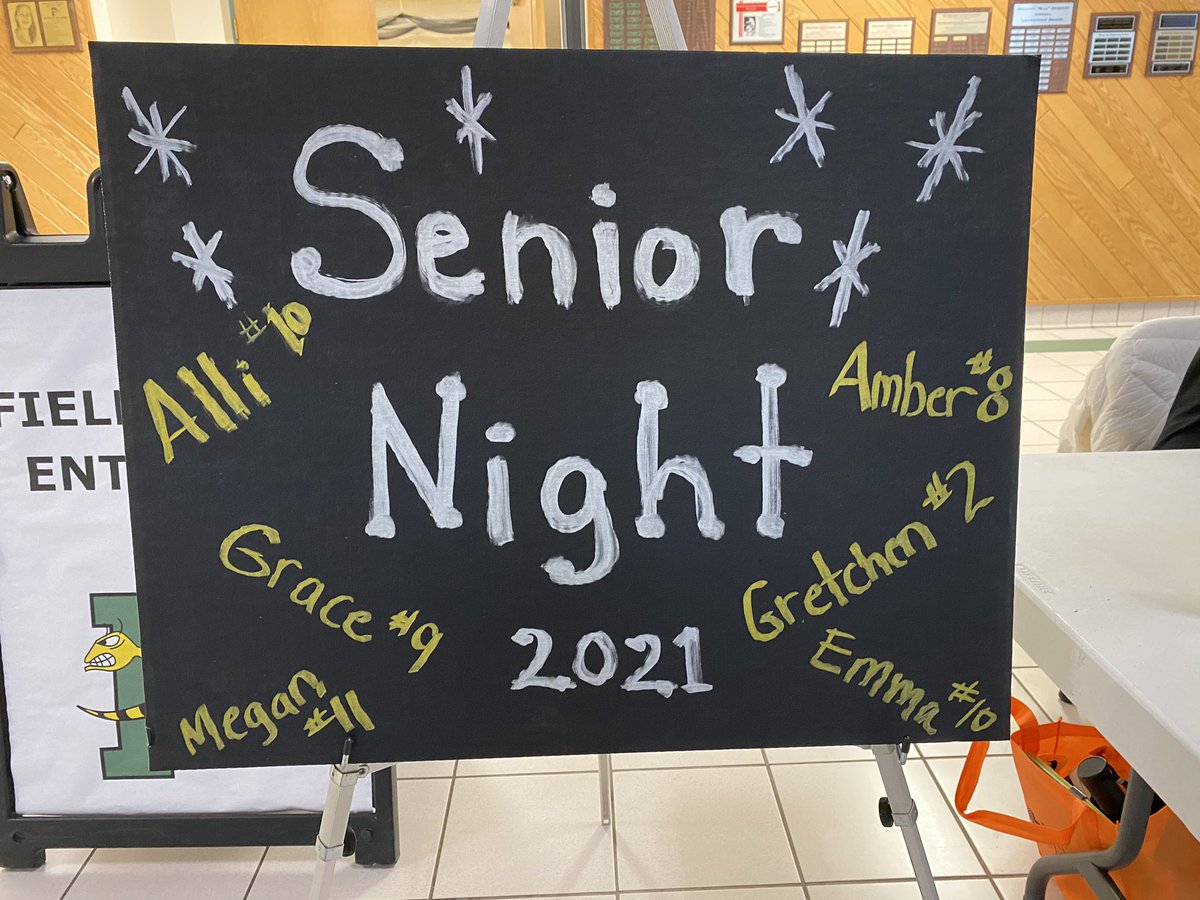 Senior
Night
2021
Alli #20
Amber #8
Grace #9
Gretchen #2
Megan #11
Emma #10
FIEL
ENT